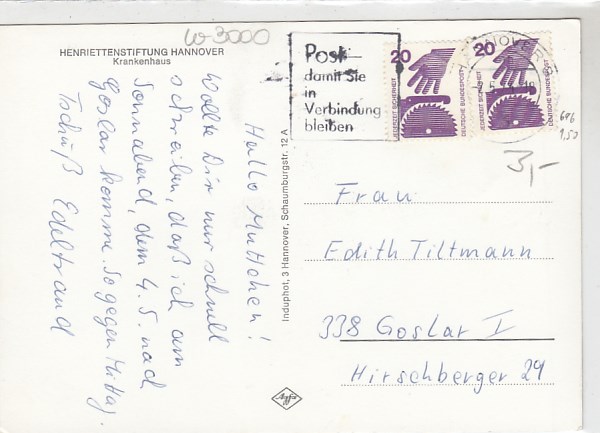 W-3000
HENRIETTENSTIFTUNG HANNOVER
Krankenhaus
Hallo Muttchen!
Wollte Dir nur schnell
schreiben, daß ich am
Sonnabend, dem 4.5. nach
Goslar komme. So gegen Mittag.
Tschüß Edeltraud
Induphot, 3 Hannover, Schaumburgstr. 12 A
Agfa
Post
damit Sie
in
Verbindung
bleiben
20
JEDERZEIT SICHERHEIT
DEUTSCHE BUNDESPOST
20
JEDERZEIT SICHERHEIT
DEUTSCHE BUNDESPOST
HANNOVER
696
1,50
3,-
Frau
Edith Tiltmann
338 Goslar I
Hirschberger 29